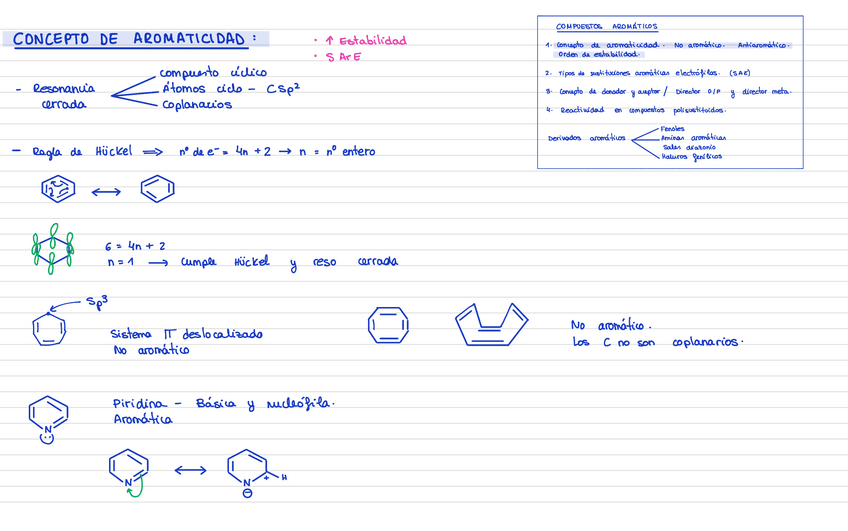 CONCEPTO DE AROMATICIDAD :
· ↑ Estabilidad
· S Ar E
- Resonancia cerrada
compuesto cíclico
Átomos ciclo - C Sp²
Coplanarios
- Regla de Hückel ⟹ nº de e⁻ = 4n + 2 → n = nº entero
6 = 4n + 2
n = 1 → cumple Hückel y reso cerrada
Sp³
Sistema π deslocalizado
No aromático
No aromático.
Los C no son coplanarios.
Piridina - Básica y nucleófila.
Aromática
N
N
N
+ H
⊖
COMPUESTOS AROMÁTICOS
1. Concepto de aromaticidad. No aromático. Antiaromático.
Orden de estabilidad.
2. Tipos de sustituciones aromáticas electrófilas. (SAE)
3. Concepto de donador y aceptor / Director O/P y director meta.
4. Reactividad en compuestos polisustituidos.
Derivados aromáticos
Fenoles
Aminas aromáticas
Sales diazonio
Haluros fenílicos